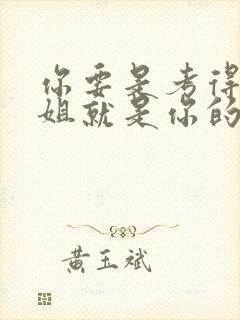 你要是考得
姐就是你的
黄玉斌